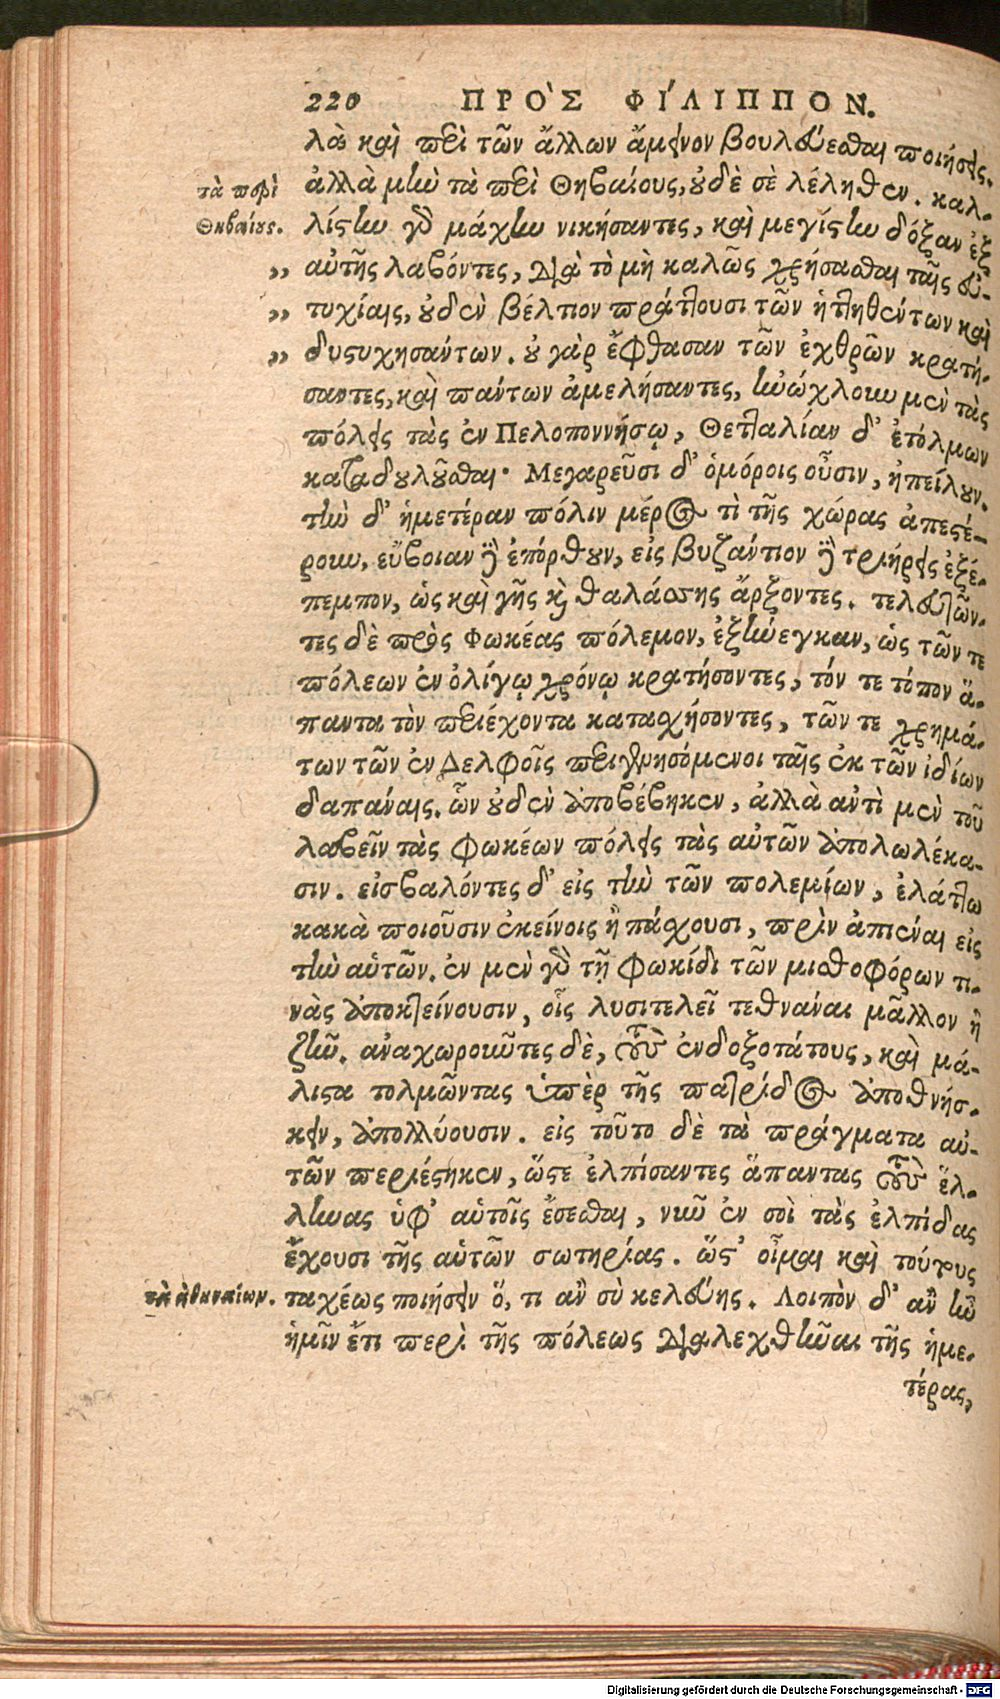 220 ΠΡΟ᾽Σ ΦΙ´ΛΙΠΠΟΝ.
λὰ καὶ περὶ τῶν ἄλλων ἄμεινον βουλεύεσθαι ποιήσεις.
τὰ περὶ ἀλλὰ μὴν τὰ περὶ Θηβαίους, οὐδὲ σὲ λέληθεν. καλ-
Θηβαίους. λίστην γὰρ μάχην νικήσαντες, καὶ μεγίστην δόξαν ἐξ
„ αὐτῆς λαβόντες, διὰ τὸ μὴ καλῶς χρήσασθαι ταῖς εὐ-
„ τυχίαις, οὐδὲν βέλτιον πράττουσι τῶν ἡττηθέντων καὶ
„ δυστυχησάντων. οὐ γὰρ ἔφθασαν τῶν ἐχθρῶν κρατή-
σαντες, καὶ πάντων ἀμελήσαντες, ἠνώχλουν μὲν τὰς
πόλεις τὰς ἐν Πελοποννήσῳ, Θετταλίαν δ᾽ ἐτόλμων
καταδουλοῦσθαι· Μεγαρεῦσι δ᾽ ὁμόροις οὖσιν, ἠπείλουν.
τὴν δ᾽ ἡμετέραν πόλιν μέρος τὶ τῆς χώρας ἀπεστέ-
ρουν, εὔβοιαν δὲ ἐπόρθουν, εἰς βυζάντιον δὲ τριήρεις ἐξέ-
πεμπον, ὡς καὶ γῆς καὶ θαλάσσης ἄρξοντες. τελευτῶν-
τες δὲ πρὸς Φωκέας πόλεμον, ἐξήνεγκαν, ὡς τῶν τε
πόλεων ἐν ὀλίγῳ χρόνῳ κρατήσοντες, τόν τε τόπον ἅ-
παντα τὸν περιέχοντα κατασχήσοντες, τῶν τε χρημά-
των τῶν ἐν Δελφοῖς περιγενησόμενοι ταῖς ἐκ τῶν ἰδίων
δαπάναις. ὧν οὐδὲν ἀποβέβηκεν, ἀλλὰ αὐτὶ μὲν τοῦ
λαβεῖν τὰς Φωκέων πόλεις τὰς αὑτῶν ἀπολωλέκα-
σιν. εἰσβαλόντες δ᾽ εἰς τὴν τῶν πολεμίων, ἐλάττω
κακὰ ποιοῦσιν ἐκείνοις ἢ πάσχουσι, πρὶν ἀπιέναι εἰς
τὴν αὑτῶν. ἐν μὲν γὰρ τῇ Φωκίδι τῶν μισθοφόρων τι-
νὰς ἀποκτείνουσιν, οἷς λυσιτελεῖ τεθνάναι μᾶλλον ἢ
ζῆν. ἀναχωροῦντες δὲ, τοὺς ἐνδοξοτάτους, καὶ μά-
λιστα τολμῶντας ὑπὲρ τῆς πατρίδος ἀποθνήσ-
κειν, ἀπολλύουσιν. εἰς τοῦτο δὲ τὰ πράγματα αὐ-
τῶν περιέστηκεν, ὥστε ἐλπίσαντες ἅπαντας τοὺς ἕλ-
ληνας ὑφ᾽ αὑτοῖς ἔσεσθαι, νῦν ἐν σοὶ τὰς ἐλπίδας
ἔχουσι τῆς αὑτῶν σωτηρίας. ὥστ᾽ οἶμαι καὶ τούτους
τὰ ἀθηναίων. ταχέως ποιήσειν ὅ, τι ἂν σὺ κελεύῃς. Λοιπὸν δ᾽ ἂν ἦν
ἡμῖν ἔτι περὶ τῆς πόλεως διαλεχθῆναι τῆς ἡμε-
τέρας,
Digitalisierung gefördert durch die Deutsche Forschungsgemeinschaft - DFG